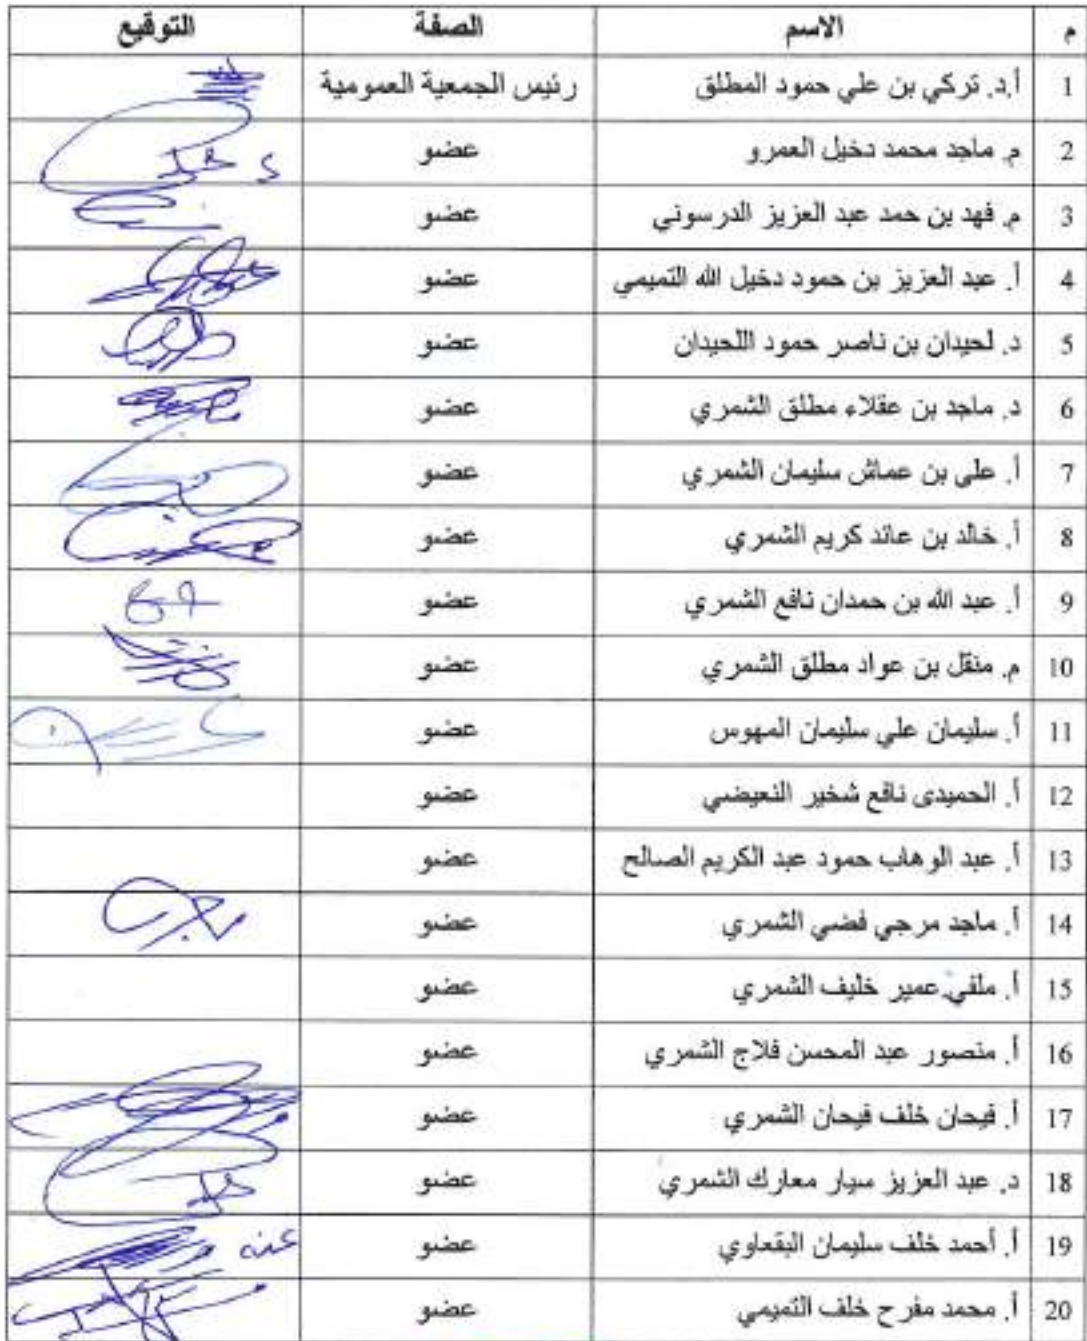 م الاسم الصفة التوقيع
1 أ.د. تركي بن علي حمود المطلق رئيس الجمعية العمومية
2 م. ماجد محمد دخيل العمرو عضو
3 م. فهد بن حمد عبد العزيز الدرسوني عضو
4 أ. عبد العزيز بن حمود دخيل الله التميمي عضو
5 د. لحيدان بن ناصر حمود اللحيدان عضو
6 د. ماجد بن عقلاء مطلق الشمري عضو
7 أ. علي بن عماش سليمان الشمري عضو
8 أ. خالد بن عائد كريم الشمري عضو
9 أ. عبد الله بن حمدان نافع الشمري عضو
10 م. منقل بن عواد مطلق الشمري عضو
11 أ. سليمان علي سليمان المهوس عضو
12 أ. الحميدى نافع شخير النعيضي عضو
13 أ. عبد الوهاب حمود عبد الكريم الصالح عضو
14 أ. ماجد مرجي فضي الشمري عضو
15 أ. ملفي عمير خليف الشمري عضو
16 أ. منصور عبد المحسن فلاج الشمري عضو
17 أ. فيحان خلف فيحان الشمري عضو
18 د. عبد العزيز سيار معارك الشمري عضو
19 أ. أحمد خلف سليمان البقعاوي عضو عنه
20 أ. محمد مفرح خلف التميمي عضو